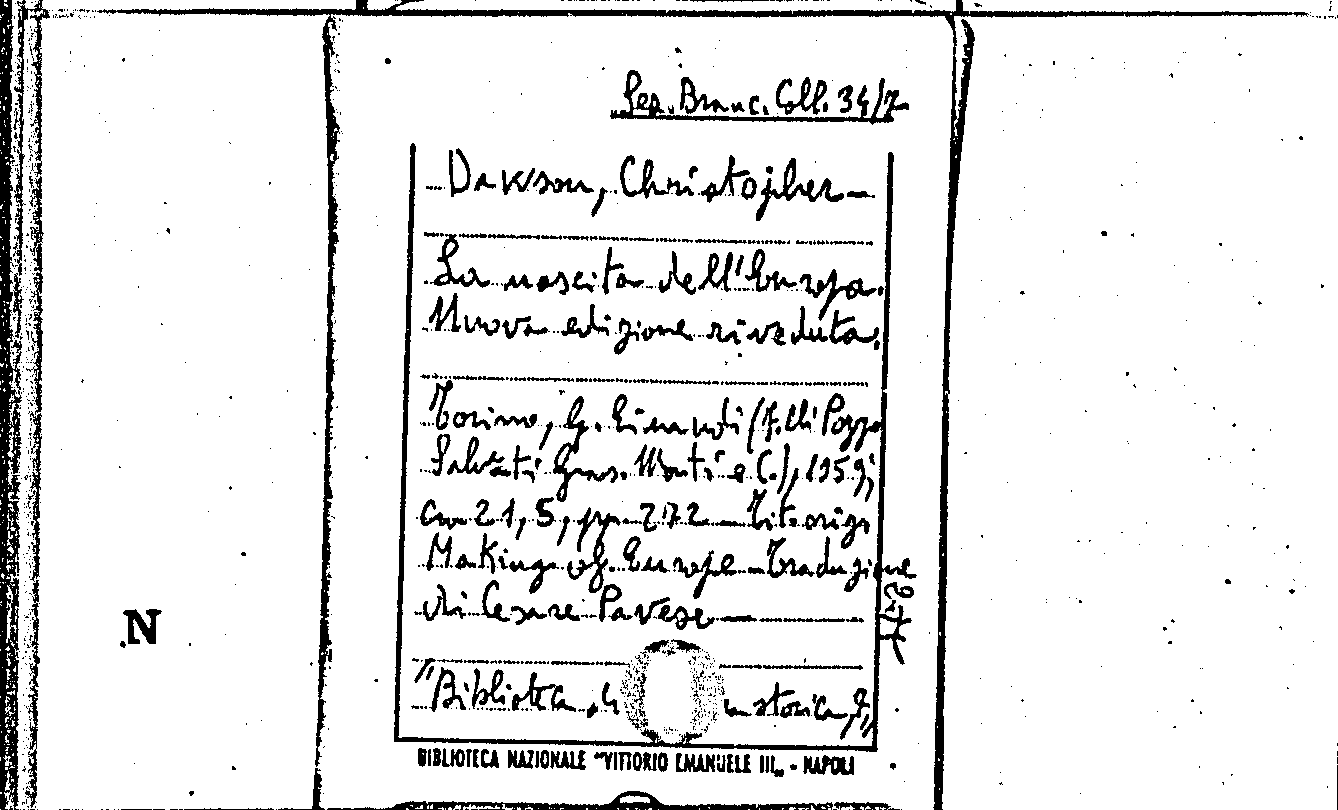 Sez. Branc. Coll. 34/7
Dawson, Christopher
La nascita dell'Europa.
Nuova edizione riveduta.
Torino, G. Einaudi (F.lli Pozzo
Salvati Gros. Monti e C.), 1959;
cm 21,5, pp. 272 – Tit. orig.
Making of Europe – Traduzione
di Cesare Pavese
"Biblioteca di storica,
N
BIBLIOTECA NAZIONALE "VITTORIO EMANUELE III„ - NAPOLI